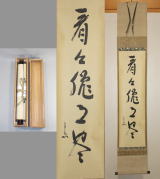 看々臘月尽